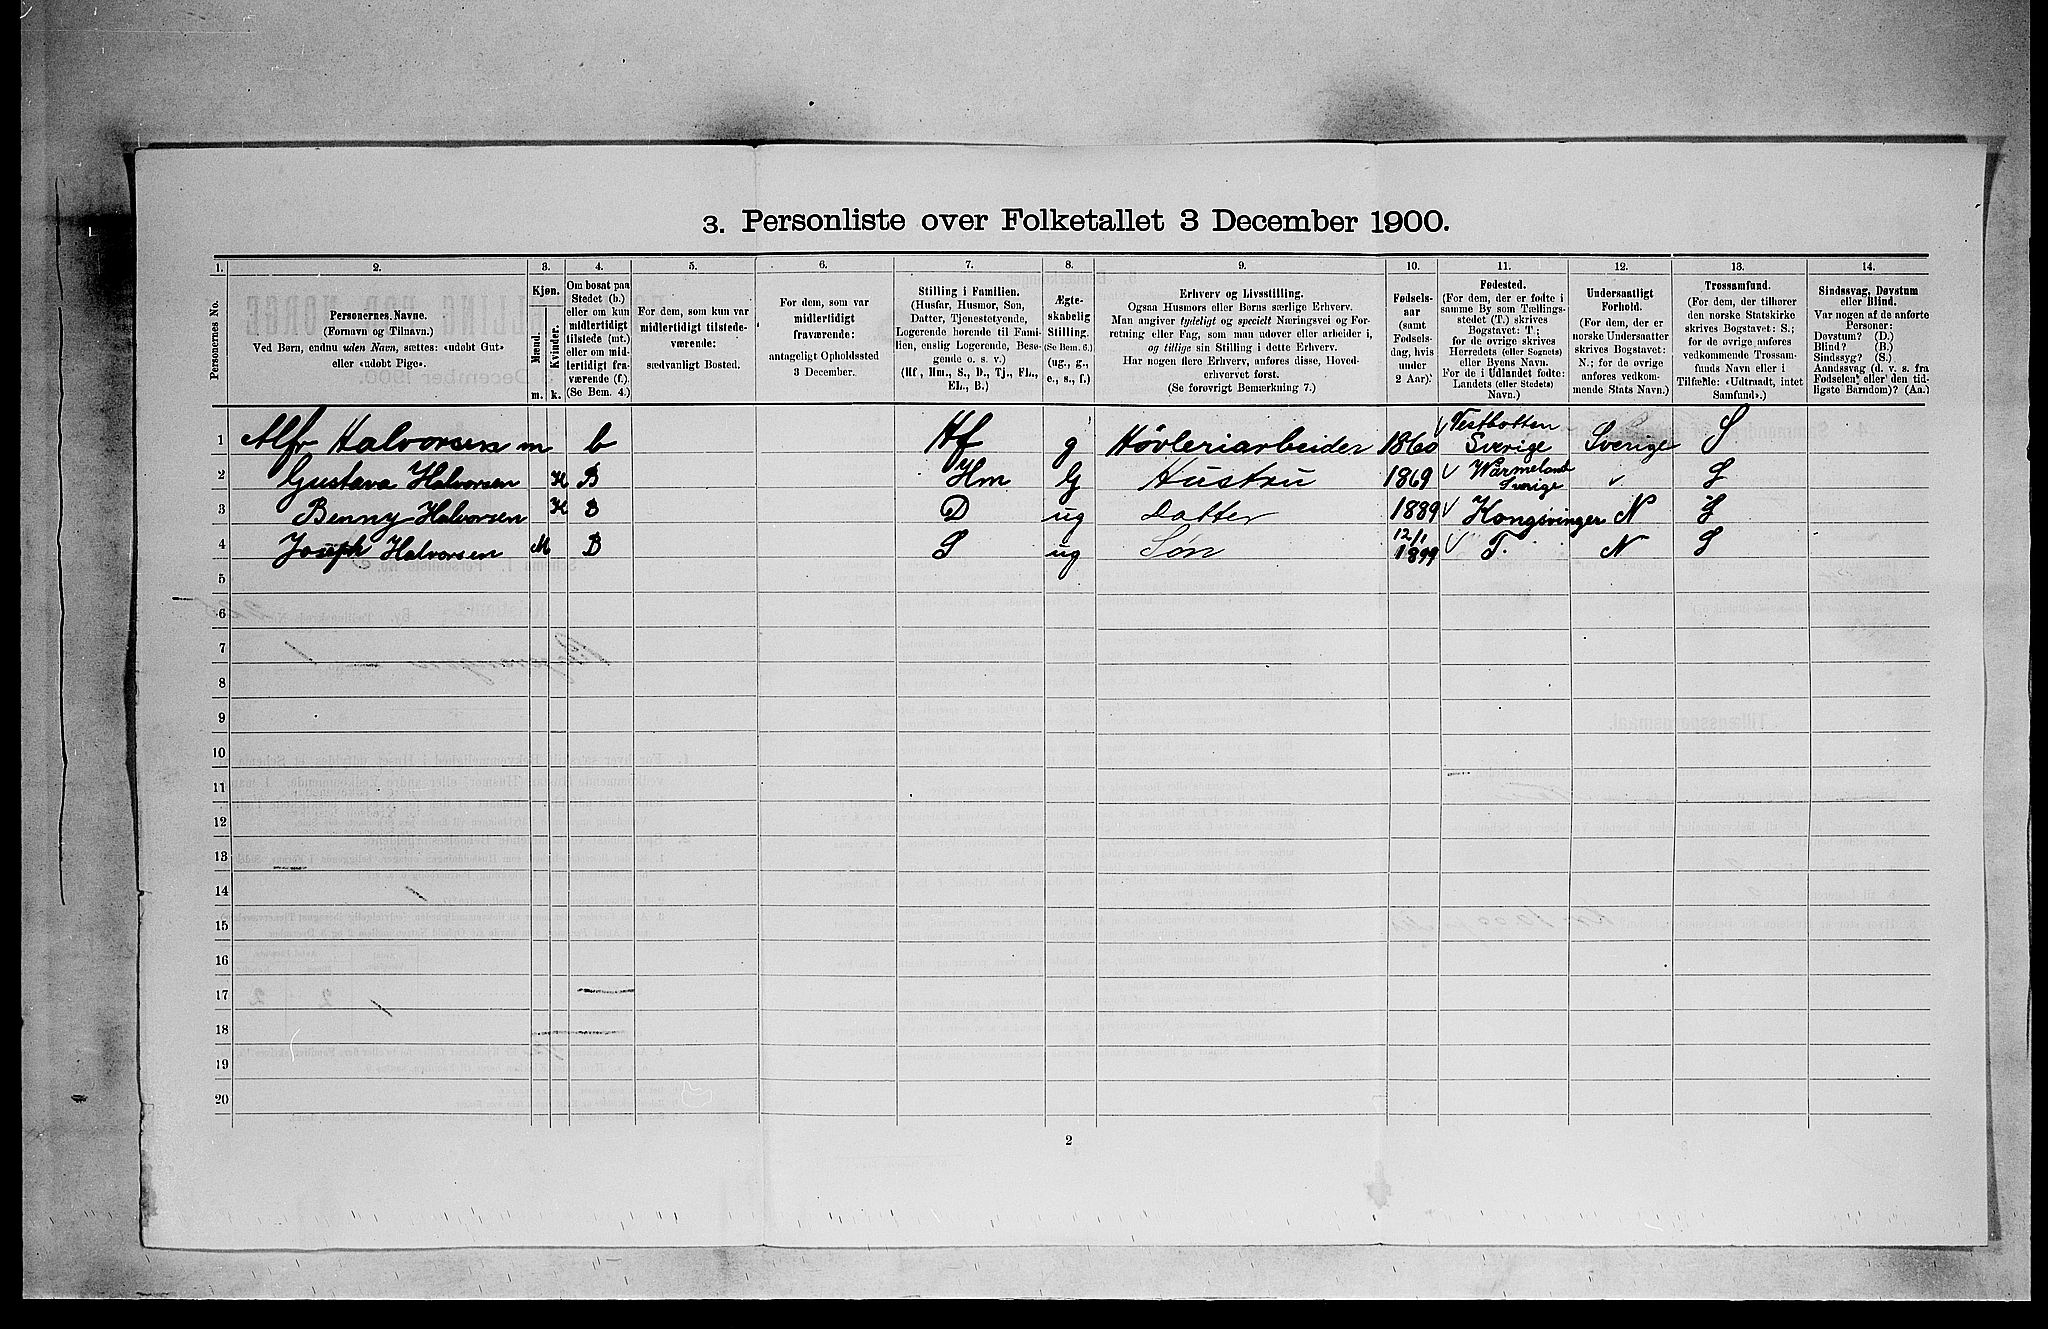 3. Personliste over Folketallet 3 December 1900.
1. 2. 3. 4. 5. 6. 7. 8. 9. 10. 11. 12. 13. 14.
Personernes No.
Personernes Navne.
(Fornavn og Tilnavn.)
Ved Børn, endnu uden Navn, sættes: «udøbt Gut»
eller «udøbt Pige».
Kjøn.
Mænd.
Kvinder.
m. k.
Om bosat paa
Stedet (b.)
eller om kun
midlertidigt
tilstede (mt.)
eller om mid-
lertidigt fra-
værende (f.).
(Se Bem. 4.)
For dem, som kun var
midlertidigt tilstede-
værende:
sædvanligt Bosted.
For dem, som var
midlertidigt
fraværende:
antageligt Opholdssted
3 December.
Stilling i Familien.
(Husfar, Husmor, Søn,
Datter, Tjenestetyende,
Logerende hørende til Fami-
lien, enslig Logerende, Besø-
gende o. s. v.)
(Hf., Hm., S., D., Tj., FL.,
EL., B.)
Ægte-
skabelig
Stilling.
(Se Bem. 6.)
(ug., g.,
e., s., f.)
Erhverv og Livsstilling.
Ogsaa Husmors eller Børns særlige Erhverv.
Man angiver tydeligt og specielt Næringsvei og For-
retning eller Fag, som man udøver eller arbeider i,
og tillige sin Stilling i dette Erhverv.
Har nogen flere Erhverv, anføres disse, Hoved-
erhvervet først.
(Se forøvrigt Bemærkning 7.)
Fødsels-
aar
(samt
Fødsels-
dag, hvis
under
2 Aar).
Fødested.
(For dem, der er fødte i
samme By som Tællings-
stedet (T.) skrives
Bogstavet: T.;
for de øvrige skrives
Herredets (eller Sognets)
eller Byens Navn.
For de i Udlandet fødte:
Landets (eller Stedets)
Navn.)
Undersaatligt
Forhold.
(For dem, der er
norske Undersaatter
skrives Bogstavet:
N.; for de øvrige
anføres vedkom-
mende Stats Navn.)
Trossamfund.
(For dem, der tilhører
den norske Statskirke
skrives Bogstavet: S.;
for de øvrige anføres
vedkommende Trossam-
funds Navn eller i
Tilfælde: «Udtraadt, intet
Samfund».)
Sindssvag, Døvstum
eller Blind.
Var nogen af de anførte
Personer:
Døvstum? (D.)
Blind? (B.)
Sindssyg? (S.)
Aandssvag (d. v. s. fra
Fødselen eller den tid-
ligste Barndom)? (Aa.)
1 Alfr Halvorsen m b Hf g Høvleriarbeider 1860 Vestbotten Sverige Sverige S
2 Gustava Halvorsen K B Hm G Hustru 1869 Warmeland Sverige " S
3 Benny Halvorsen K B D ug Datter 1889 Kongsvinger N S
4 Joseph Halvorsen M B S ug Søn 12/1 1899 T. N S
5
6
7
8
9
10
11
12
13
14
15
16
17
18
19
20
2